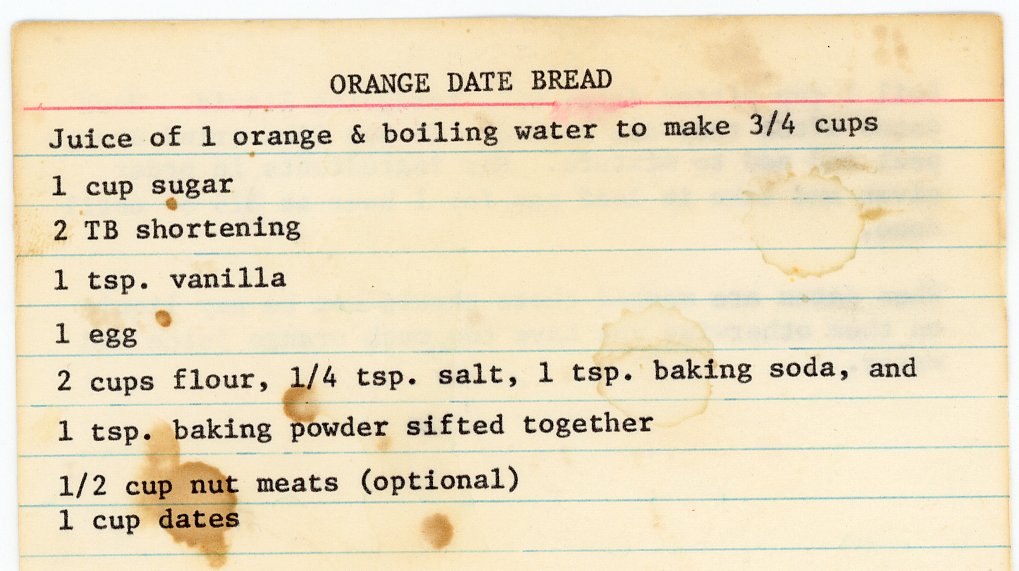 ORANGE DATE BREAD
Juice of 1 orange & boiling water to make 3/4 cups
1 cup sugar
2 TB shortening
1 tsp. vanilla
1 egg
2 cups flour, 1/4 tsp. salt, 1 tsp. baking soda, and
1 tsp. baking powder sifted together
1/2 cup nut meats (optional)
1 cup dates